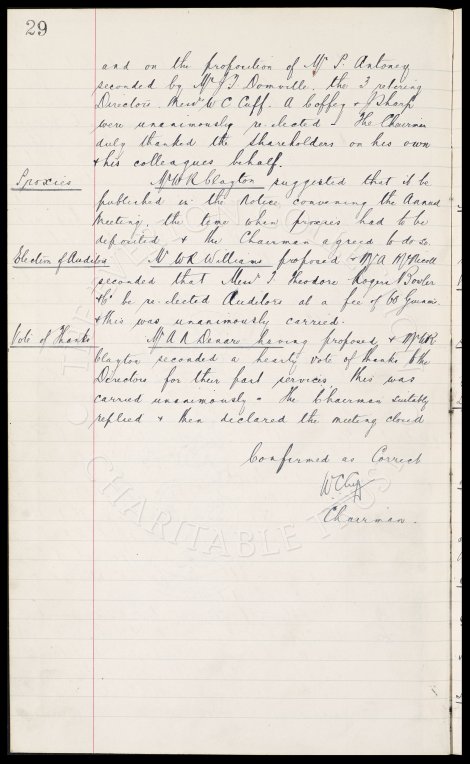 29
and on the proposition of Mr S. Antoney
seconded by Mr J T Domville, the 3 retiring
Directors Messrs W C Cuff. A Coffey & J Sharp
were unanimously re-elected - The Chairman
duly thanked the shareholders on his own
& his colleagues behalf.
Proxies
Mr W R Clayton suggested that it be
published in the Notice convening the Annual
Meeting, the time when proxies had to be
deposited & the Chairman agreed to do so.
Election of Auditors
Mr W R Williams proposed & Mr A
seconded that Messrs Theodore Rogers Bowler
& Co be re-elected Auditors at a fee of 60 Guineas
& this was unanimously carried.
Vote of Thanks
Mr A R Denaro having proposed, & Mr W R
Clayton seconded a hearty vote of thanks to the
Directors for their past services this was
carried unanimously - The Chairman suitably
replied & then declared the meeting closed
Confirmed as Correct
W. C. Cuff
Chairman.
CHARITABLE